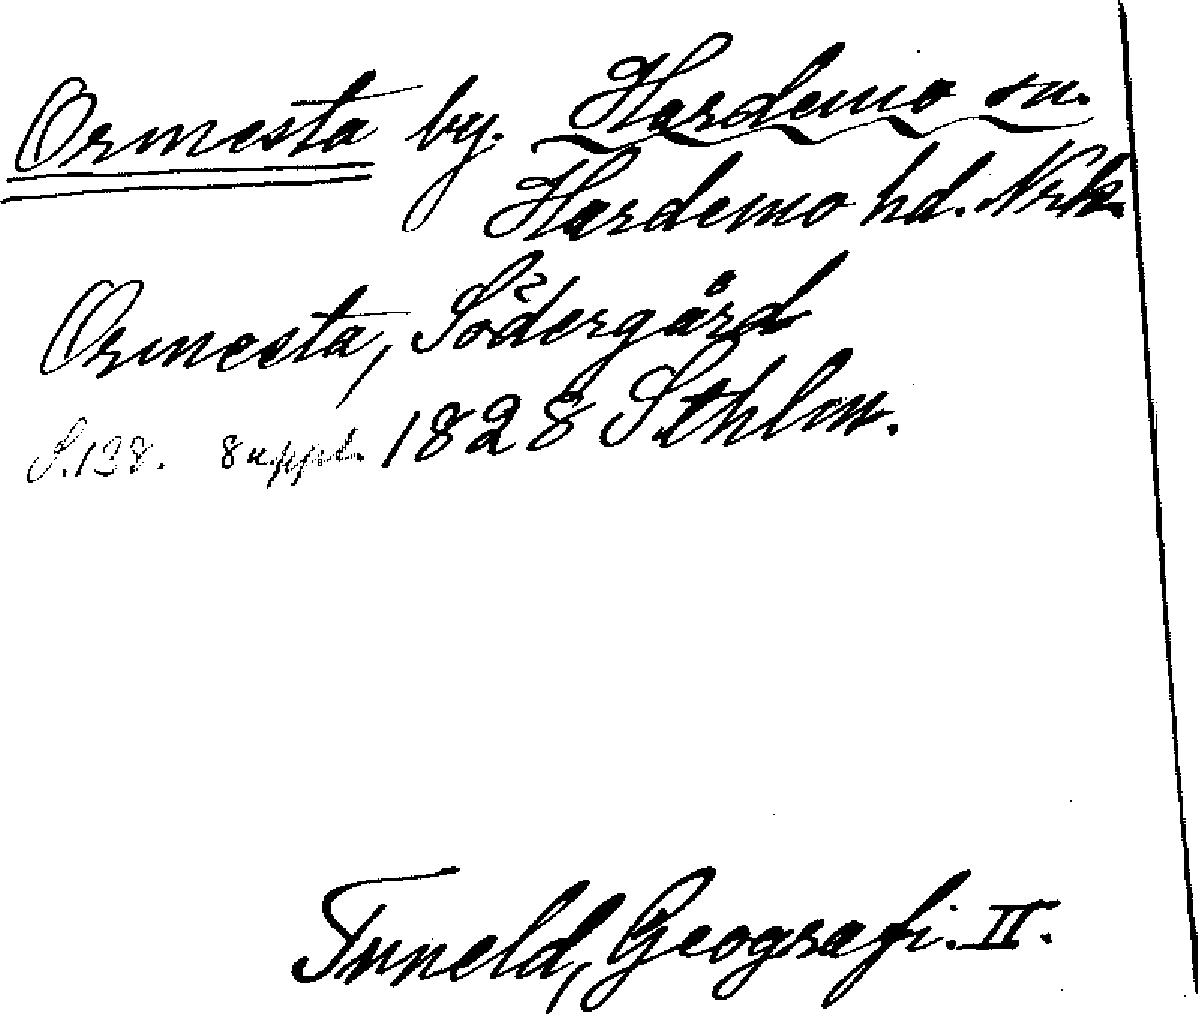 Ormesta by. Hardemo sn.
Hardemo hd. Nrk.
Ormesta, Södergård
S. 138. suppl. 1828 Sthlm.
Tuneld, Geografi. II.